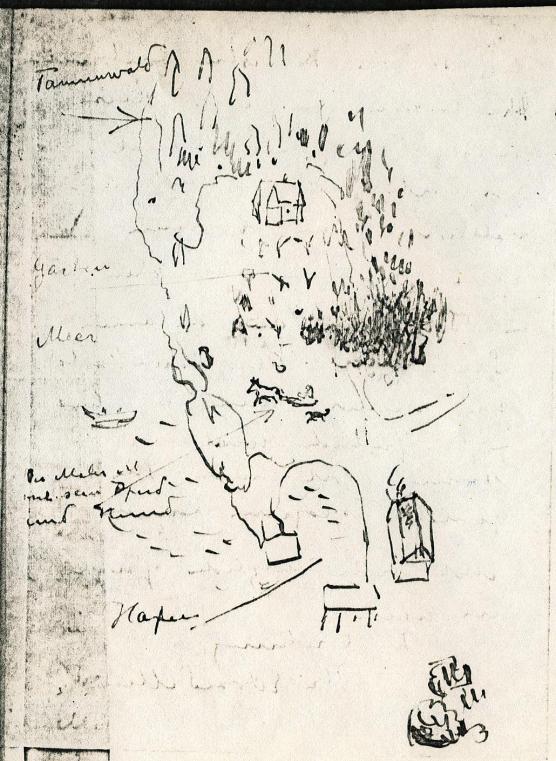 Tannenwald
Garten
Meer
Der Maler mit
und sein Pferd
und Hund
Hafen